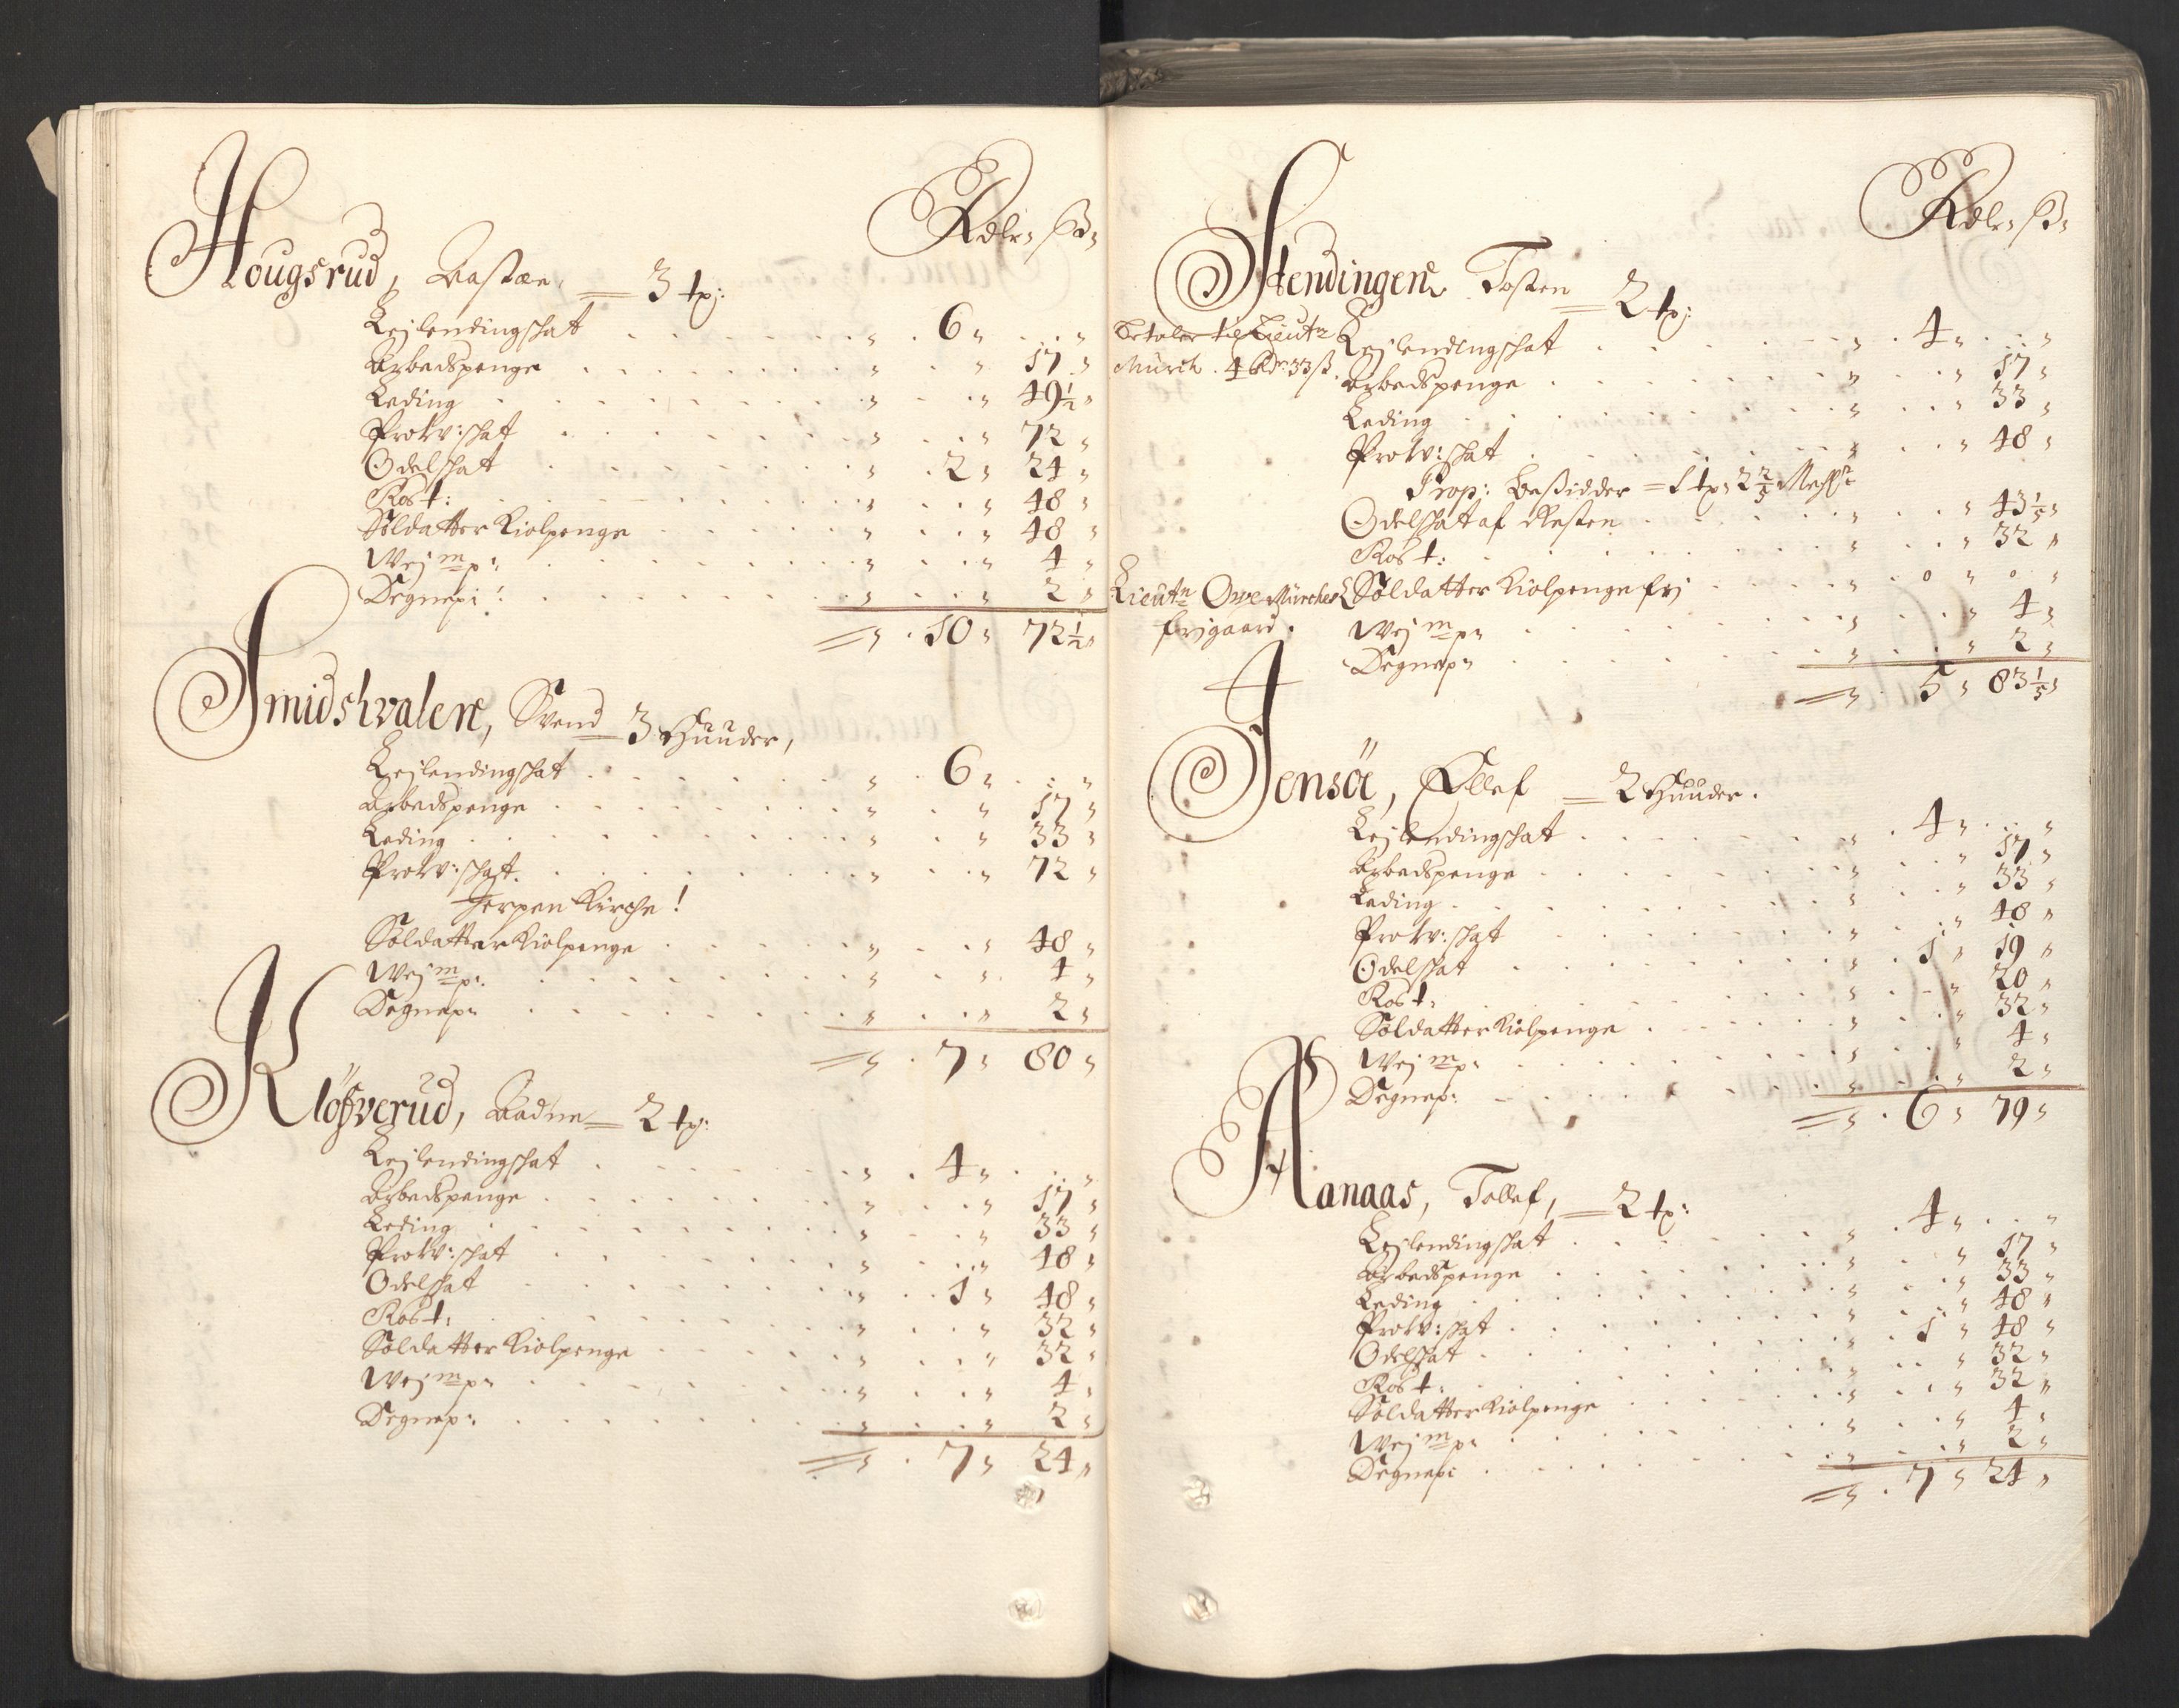 Rdlr ß
Hougsrud, Bastæn, = 3 tp:
Lejlendingschat 6
Arbedspenge 17
Leding 49½
Prow:schat 72
Odelschat 2 24
Ros t: 48
Soldatter Kiolpenge 48
Wej m p: 4
Degnepi: 2
10 72½
Smidshvalen, Svend = 3 Huuder,
Lejlendingschat 6
Arbedspenge 17
Leding 33
Prow:schat 72
Jerpen Kirche!
Soldatter Kiolpenge 48
Wej m p: 4
Degnep: 2
7 80
Klöfverud, Aadne = 2 tp:
Lejlendingschat 4
Arbedspenge 17
Leding 33
Prow:schat 48
Odelschat 1 48
Ros t: 32
Soldatter Kiolpenge 32
Wej m p: 4
Degnep: 2
7 24
Rdlr ß
Stendingen Tosten = 2 tp:
Betaler til Lieutn
Mürch. 4 Rdr 33 ß.
Lejlendingschat 4
Arbedspenge 17
Leding 33
Prow:schat 48
Prop: besidder = 1 tp: 2 2/5
Odelschat af Resten 43 1/5
Ros t: 32
Lieutn Ove Mürches
frjgaard.
Soldatter Kiolpenge frj 0 0
Wej m p: 4
Degnep: 2
5 83 1/5
Jensöe, Ellef = 2 Huuder.
Lejlendingschat 4
Arbedspenge 17
Leding 33
Prow:schat 48
Odelschat 1 19
Ros t: 20
Soldatter Kiolpenge 32
Wej m p: 4
Degnep: 2
6 79
Aanaas, Tollef, = 2 tp:
Lejlendingschat 4
Arbedspenge 17
Leding 33
Prow:schat 48
Odelschat 1 48
Ros t: 32
Soldatter Kiolpenge 32
Wej m p: 4
Degnepi 2
7 24